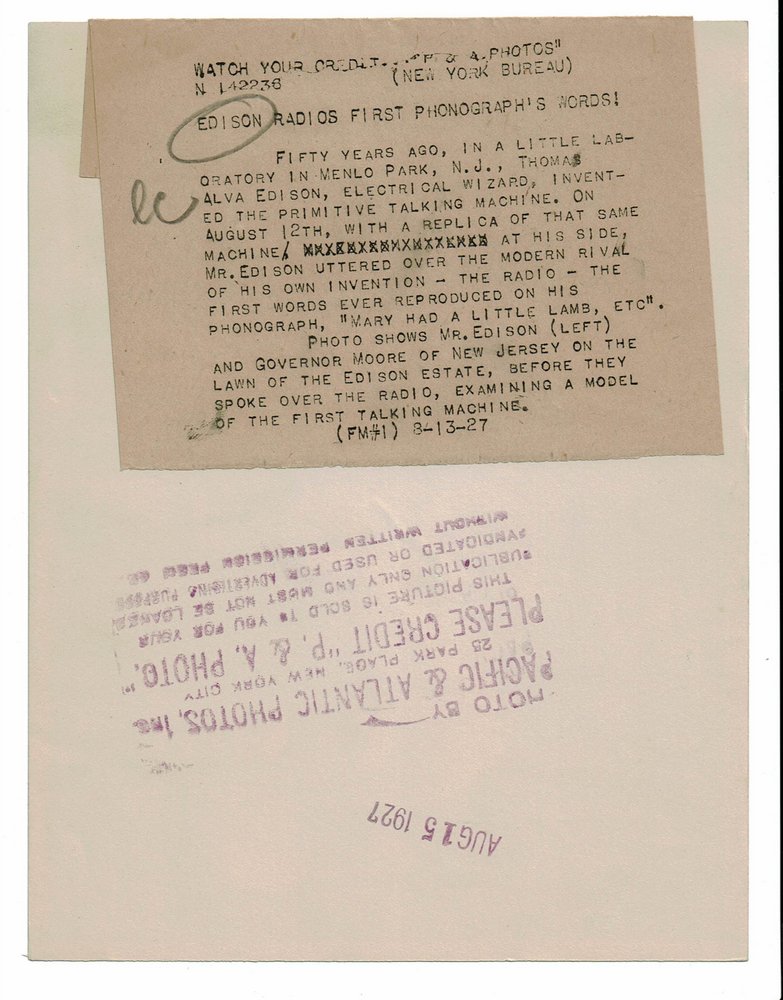 WATCH YOUR CREDIT...."P & A PHOTOS"
N 142236 (NEW YORK BUREAU)
EDISON RADIOS FIRST PHONOGRAPH'S WORDS!
FIFTY YEARS AGO, IN A LITTLE LAB-
ORATORY IN MENLO PARK, N.J., THOMAS
ALVA EDISON, ELECTRICAL WIZARD, INVENT-
ED THE PRIMITIVE TALKING MACHINE. ON
AUGUST 12TH, WITH A REPLICA OF THAT SAME
MACHINE, AT HIS SIDE,
MR. EDISON UTTERED OVER THE MODERN RIVAL
OF HIS OWN INVENTION - THE RADIO - THE
FIRST WORDS EVER REPRODUCED ON HIS
PHONOGRAPH, "MARY HAD A LITTLE LAMB, ETC".
PHOTO SHOWS MR. EDISON (LEFT)
AND GOVERNOR MOORE OF NEW JERSEY ON THE
LAWN OF THE EDISON ESTATE, BEFORE THEY
SPOKE OVER THE RADIO, EXAMINING A MODEL
OF THE FIRST TALKING MACHINE.
(FM#1) 8-13-27
PHOTO BY
PACIFIC & ATLANTIC PHOTOS, INC
25 PARK PLACE, NEW YORK CITY
PLEASE CREDIT "P. & A. PHOTO."
THIS PICTURE IS SOLD TO YOU FOR YOUR
PUBLICATION ONLY AND MUST NOT BE LOANED
SYNDICATED OR USED FOR ADVERTISING PURPOSES
WITHOUT WRITTEN PERMISSION
AUG 15 1927